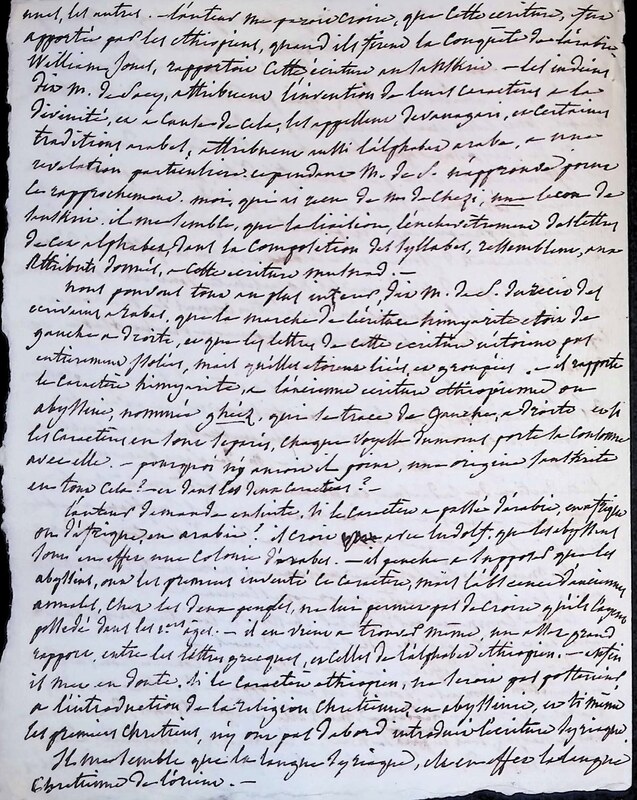 unes, les autres. – l'auteur me paroit croire, que cette ecriture, fut
apportée par les ethiopiens, quand ils firent la conquête de l'arabie.
William Jones, rapportoit cette écriture au sanskrit – les indiens
dit M. de Sacy, attribuent l'invention de leurs caractères a la
divinité, et a cause de cela, les appellent devanagari, et certaines
traditions arabes, attribuent aussi l'alphabet arabe, a une
revelation particuliere. cependant M. de S. n'approuve point
le rapprochement. moi, qui ai reçu de M. de Chezy, une leçon de
sanskrit. il me semble, que la liaison, l'enchevetrement des lettres
de cet alphabet, dans la composition des syllabes, ressemblent, aux
attributs donnés, a cette ecriture musnad. –
nous pouvons tout au plus inferer, dit M. de S. du recit des
ecrivains arabes, que la marche de l'écriture himyarite etoit de
gauche a droite, et que les lettres de cette ecriture n'etoient pas
entierement isolées, mais qu'elles etoient liées, et groupées. – il rapporte
le caractère himyarite, a l'ancienne ecriture ethiopienne ou
abyssine, nommée gheez, que se trace de gauche, a droite et si
les caractères en sont separés, chaque voyelle du moins, porte la consonne
avec elle. – pourquoi n'y auroit il point, une origine sanskrite
en tout cela ? et dans les deux caractères ? –
l'auteur demande ensuite, si le caractère a passé d'arabie, en afrique
ou d'afrique en arabie ? il croit avec Ludolf, que les abyssins
sont en effet une colonie d'arabes. – il penche a supposer que les
abyssins, ont les premiers inventé ce caractère, mais l'absence d'anciennes
annales, chez les deux peuples, ne lui permet pas de croire qu'ils l'ayent
possédé dans les 1ers ages. – il en vient a trouver même, un assez grand
rapport, entre les lettres grecques, et celles de l'alphabet ethiopien. – enfin
il met en doute, si le caractère ethiopien, ne seroit pas posterieur
a l'introduction de la religion chretienne, en abyssinie, et si même
les premiers chretiens, n'y ont pas d'abord introduit l'ecriture syriaque.
Il me semble que la langue syriaque, est en effet la langue
chretienne de l'orient. –